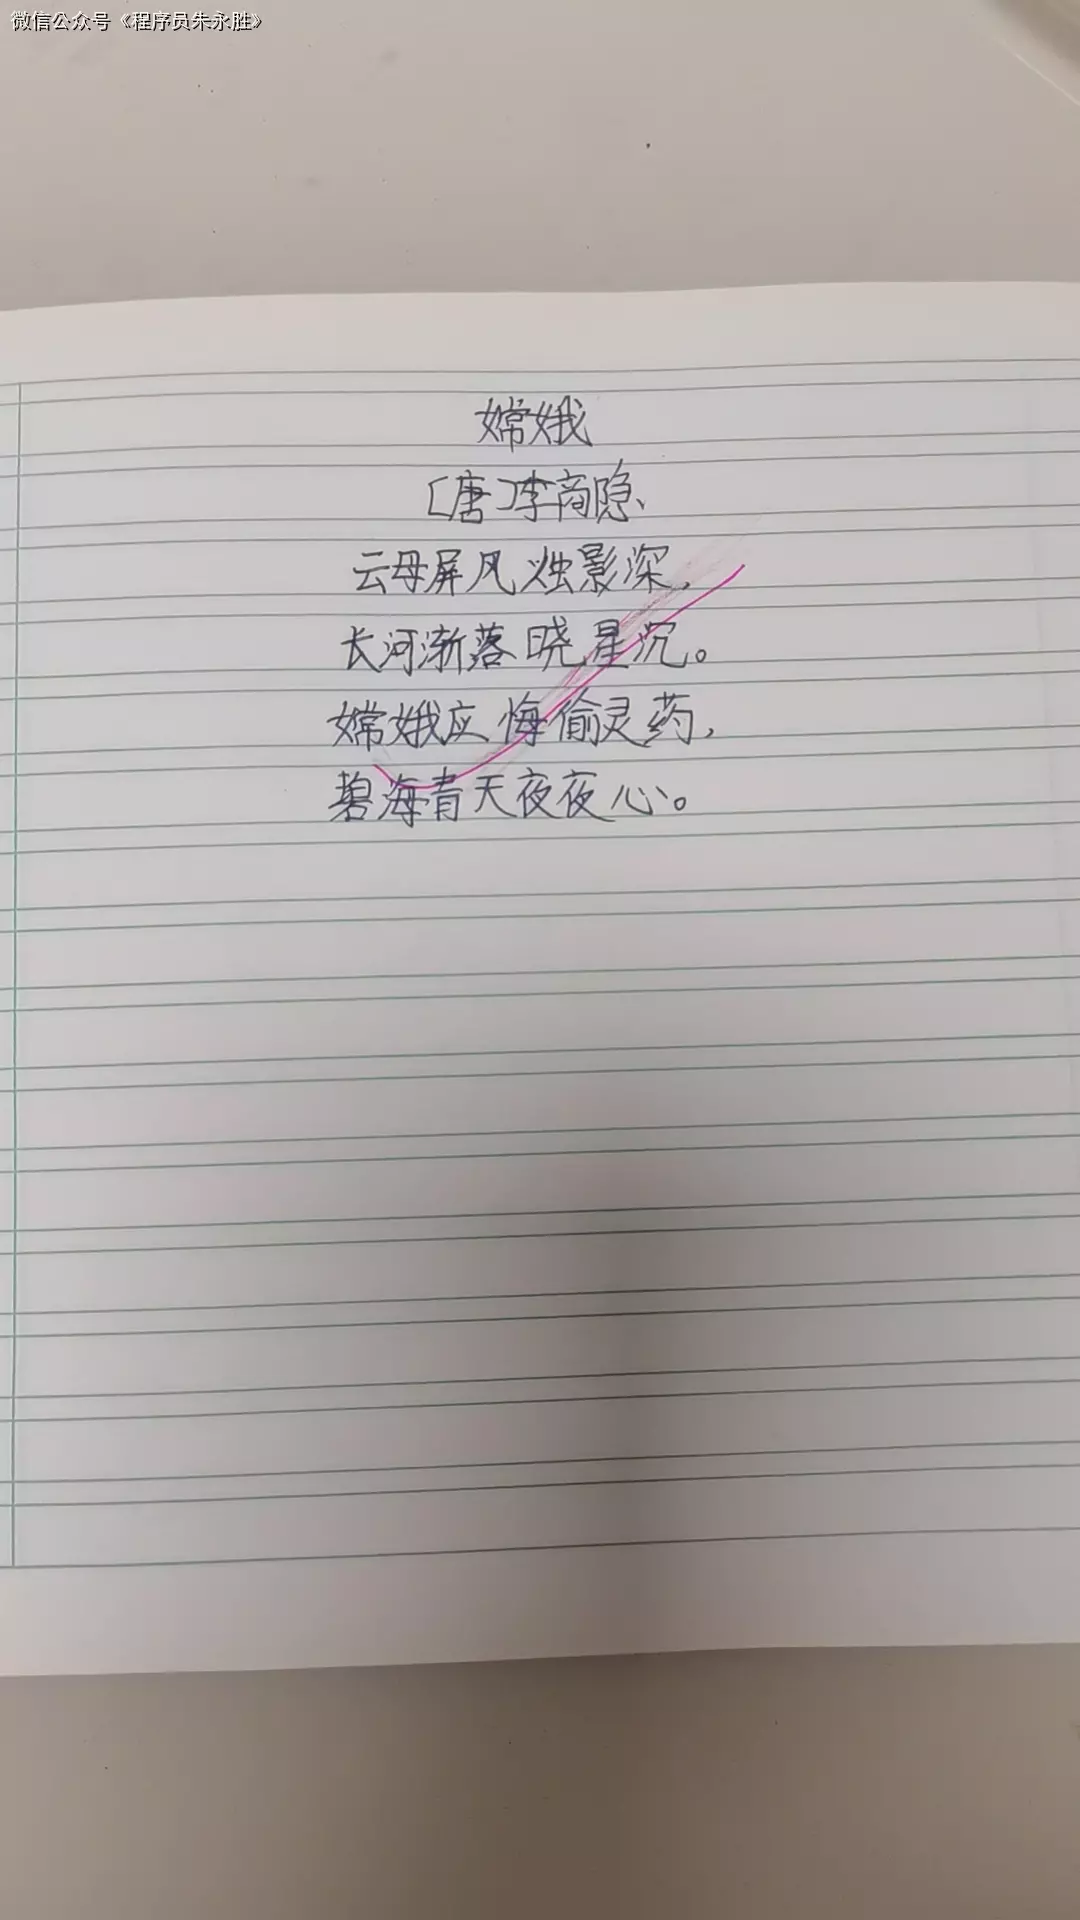 微信公众号《程序员朱永胜》
嫦娥
[唐]李商隐
云母屏风烛影深,
长河渐落晓星沉。
嫦娥应悔偷灵药,
碧海青天夜夜心。